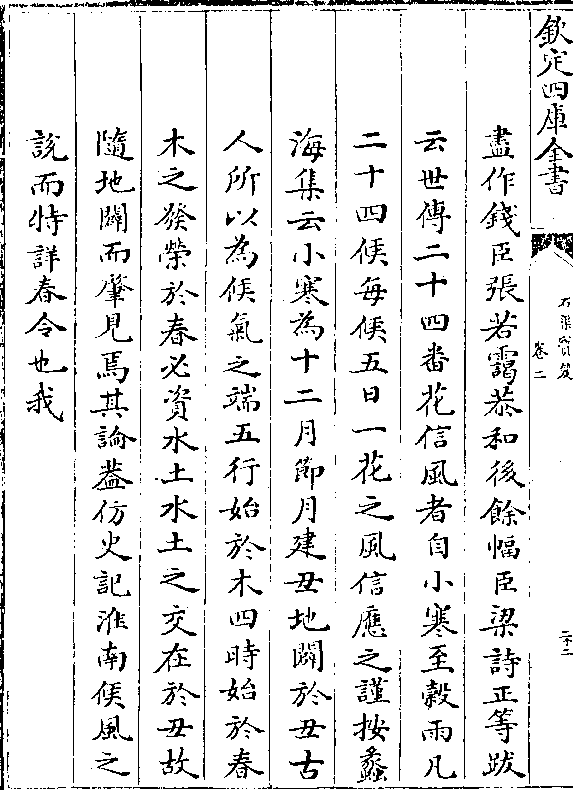 欽定四庫全書
石渠寶笈
卷二
三十二
盡作錢臣張若靄恭和後餘幅臣梁詩正等跋
云世傳二十四番花信風者自小寒至穀雨凡
二十四候每候五日一花之風信應之謹按蠡
海集云小寒為十二月節月建丑地闢於丑古
人所以為候氣之端五行始於木四時始於春
木之發榮於春必資水土水土之交在於丑故
隨地闢而肇見焉其論葢仿史記淮南候風之
說而特詳春令也我